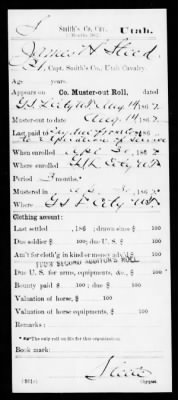 S Smith's Co. Cav. Utah.
(3 Months, 1862.)
James H. Steed
Pvt., Capt. Smith's Co., Utah Cavalry.
Age years.
Appears on Co. Muster-out Roll, dated
G.S.L. City U.T. Aug 14, 1862.
Muster-out to date Aug 14, 1862
Last paid to
to expiration of service
When enrolled Apr 30, 1862
Where enrolled G.S.L. City U.T.
Period 3 months.
Mustered in Apr 30, 1862
Where G.S.L. City U.T.
Clothing account:
Last settled , 186 ; drawn $ 100
Due soldier $ 100; due U. S. $ 100
Am't for cloth'g in kind or money adv'd $ 100
1862 SECOND AUDITOR'S ROLL
Due U. S. for arms, equipments, &c., $ 100
Bounty paid $ 100; due $ 100
Valuation of horse, $ 100
Valuation of horse equipments, $ 100
Remarks:
*The only roll on file for this organization.
Book mark:
(361c) Copyist.